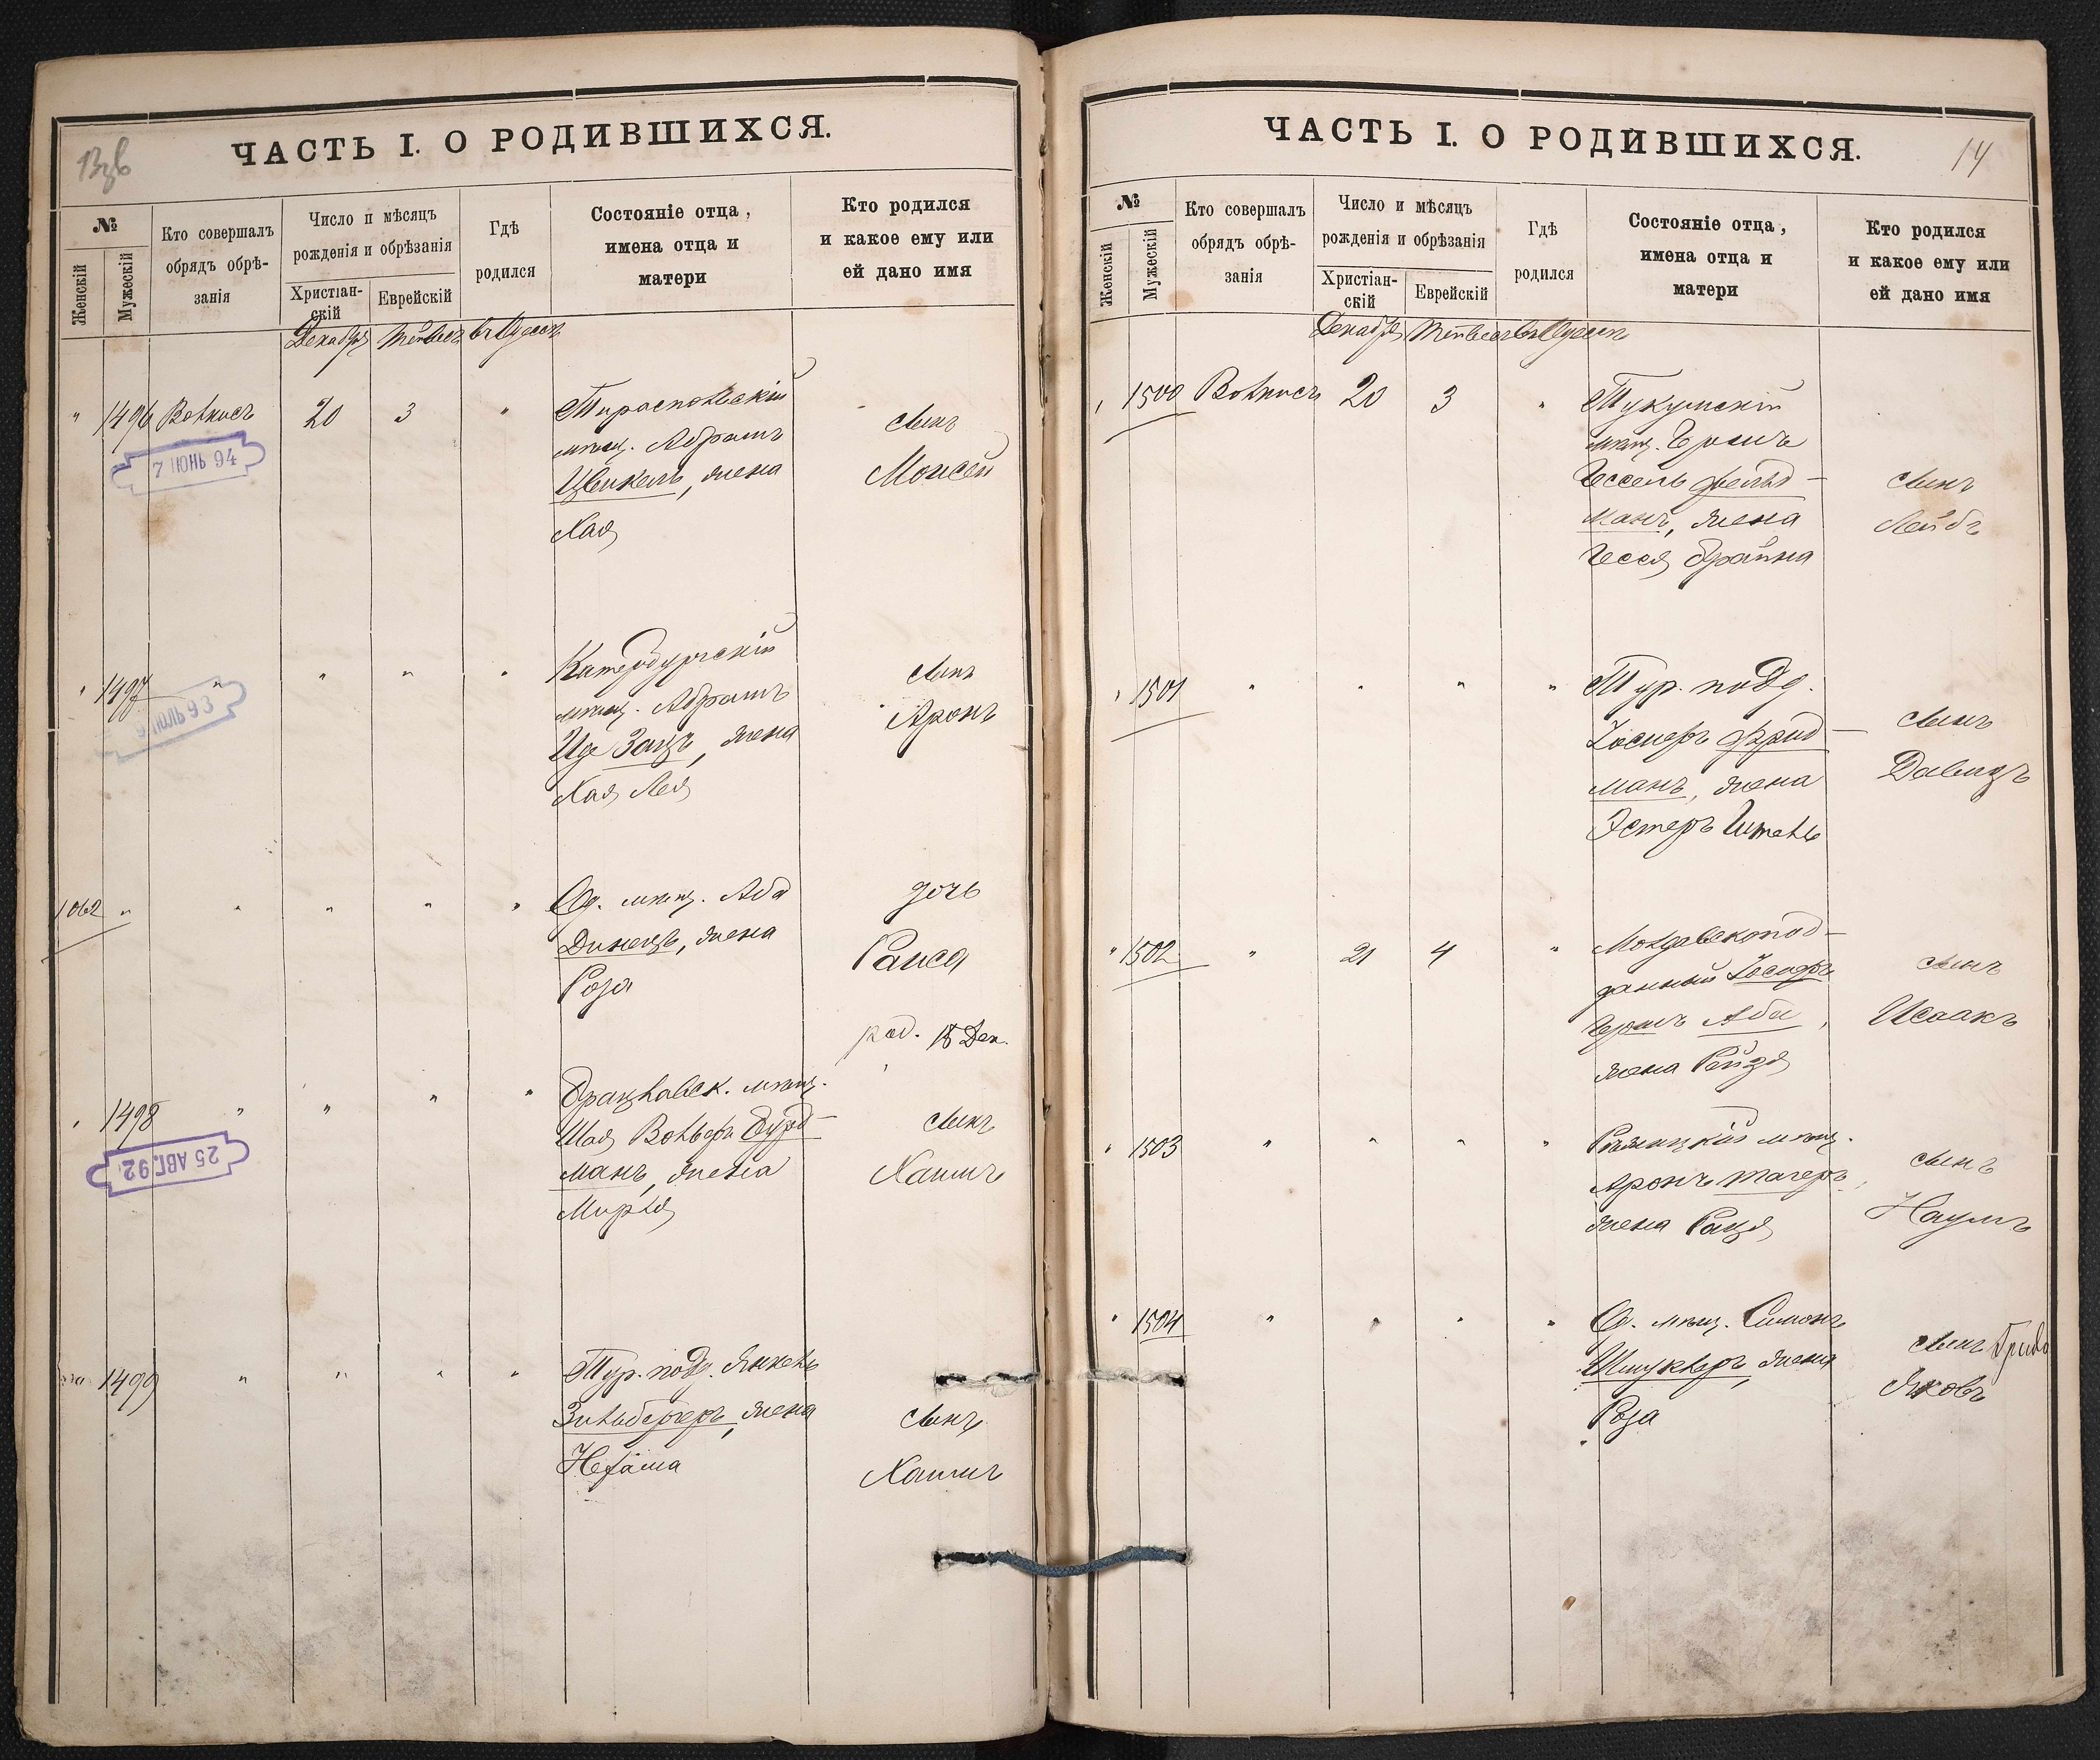 13об
ЧАСТЬ I. О РОДИВШИХСЯ.
№
Женскій
Мужескій
Кто совершалъ
обрядъ обрѣ-
занія
Число и мѣсяцъ
рожденія и обрѣзанія
Христіан-
скій
Еврейскій
Гдѣ
родился
Состояніе отца,
имена отца и
матери
Кто родился
и какое ему или
ей дано имя
Декабрь Тейвесъ въ Одессѣ
" 1496 Волкисъ 20 3 "
7 ІЮНЬ 94
Тираспольскій
мѣщ. Абрамъ
Цвикель, жена
Хая
сынъ
Моисей
" 1497 " " " "
ІЮЛЬ 93
Катербургскій
мѣщ. Абрамъ
Иде Зацъ, жена
Хая Лея
сынъ
Аронъ
1062 " " " " "
Од. мѣщ. Аба
Динецъ, жена
Роза
дочь
Раиса
род. 18 Дек.
" 1498 " " " "
25 АВГ. 92
Брацлавск. мѣщ.
Шая Вольфъ Бурд-
манъ, жена
Мирля
сынъ
Хаимъ
1499 " " " "
Тур. подд. Янкель
Зильбергеръ, жена
Нехама
сынъ
Хаимъ
14
ЧАСТЬ I. О РОДИВШИХСЯ.
№
Женскій
Мужескій
Кто совершалъ
обрядъ обрѣ-
занія
Число и мѣсяцъ
рожденія и обрѣзанія
Христіан-
скій
Еврейскій
Гдѣ
родился
Состояніе отца,
имена отца и
матери
Кто родился
и какое ему или
ей дано имя
Декабрь Тейвесъ въ Одессѣ
" 1500 Волкисъ 20 3 "
Тукумскій
мѣщ. Гершъ
Іессель Фельд-
манъ, жена
Гесся Брайна
сынъ
Лейбъ
" 1501 " " " "
Тур. подд.
Іосифъ Фрид-
манъ, жена
Эстеръ Гитель
сынъ
Давидъ
" 1502 " 21 4 "
Молдавскопод-
данный Іосифъ
Гершъ Аба,
жена Рейзя
сынъ
Исаакъ
" 1503 " " " "
мѣщ.
Аронъ Тагеръ,
жена Раця
сынъ
Наумъ
" 1504 " " " "
О. мѣщ. Симонъ
Шмуклеръ, жена
Роза
сынъ
Яковъ